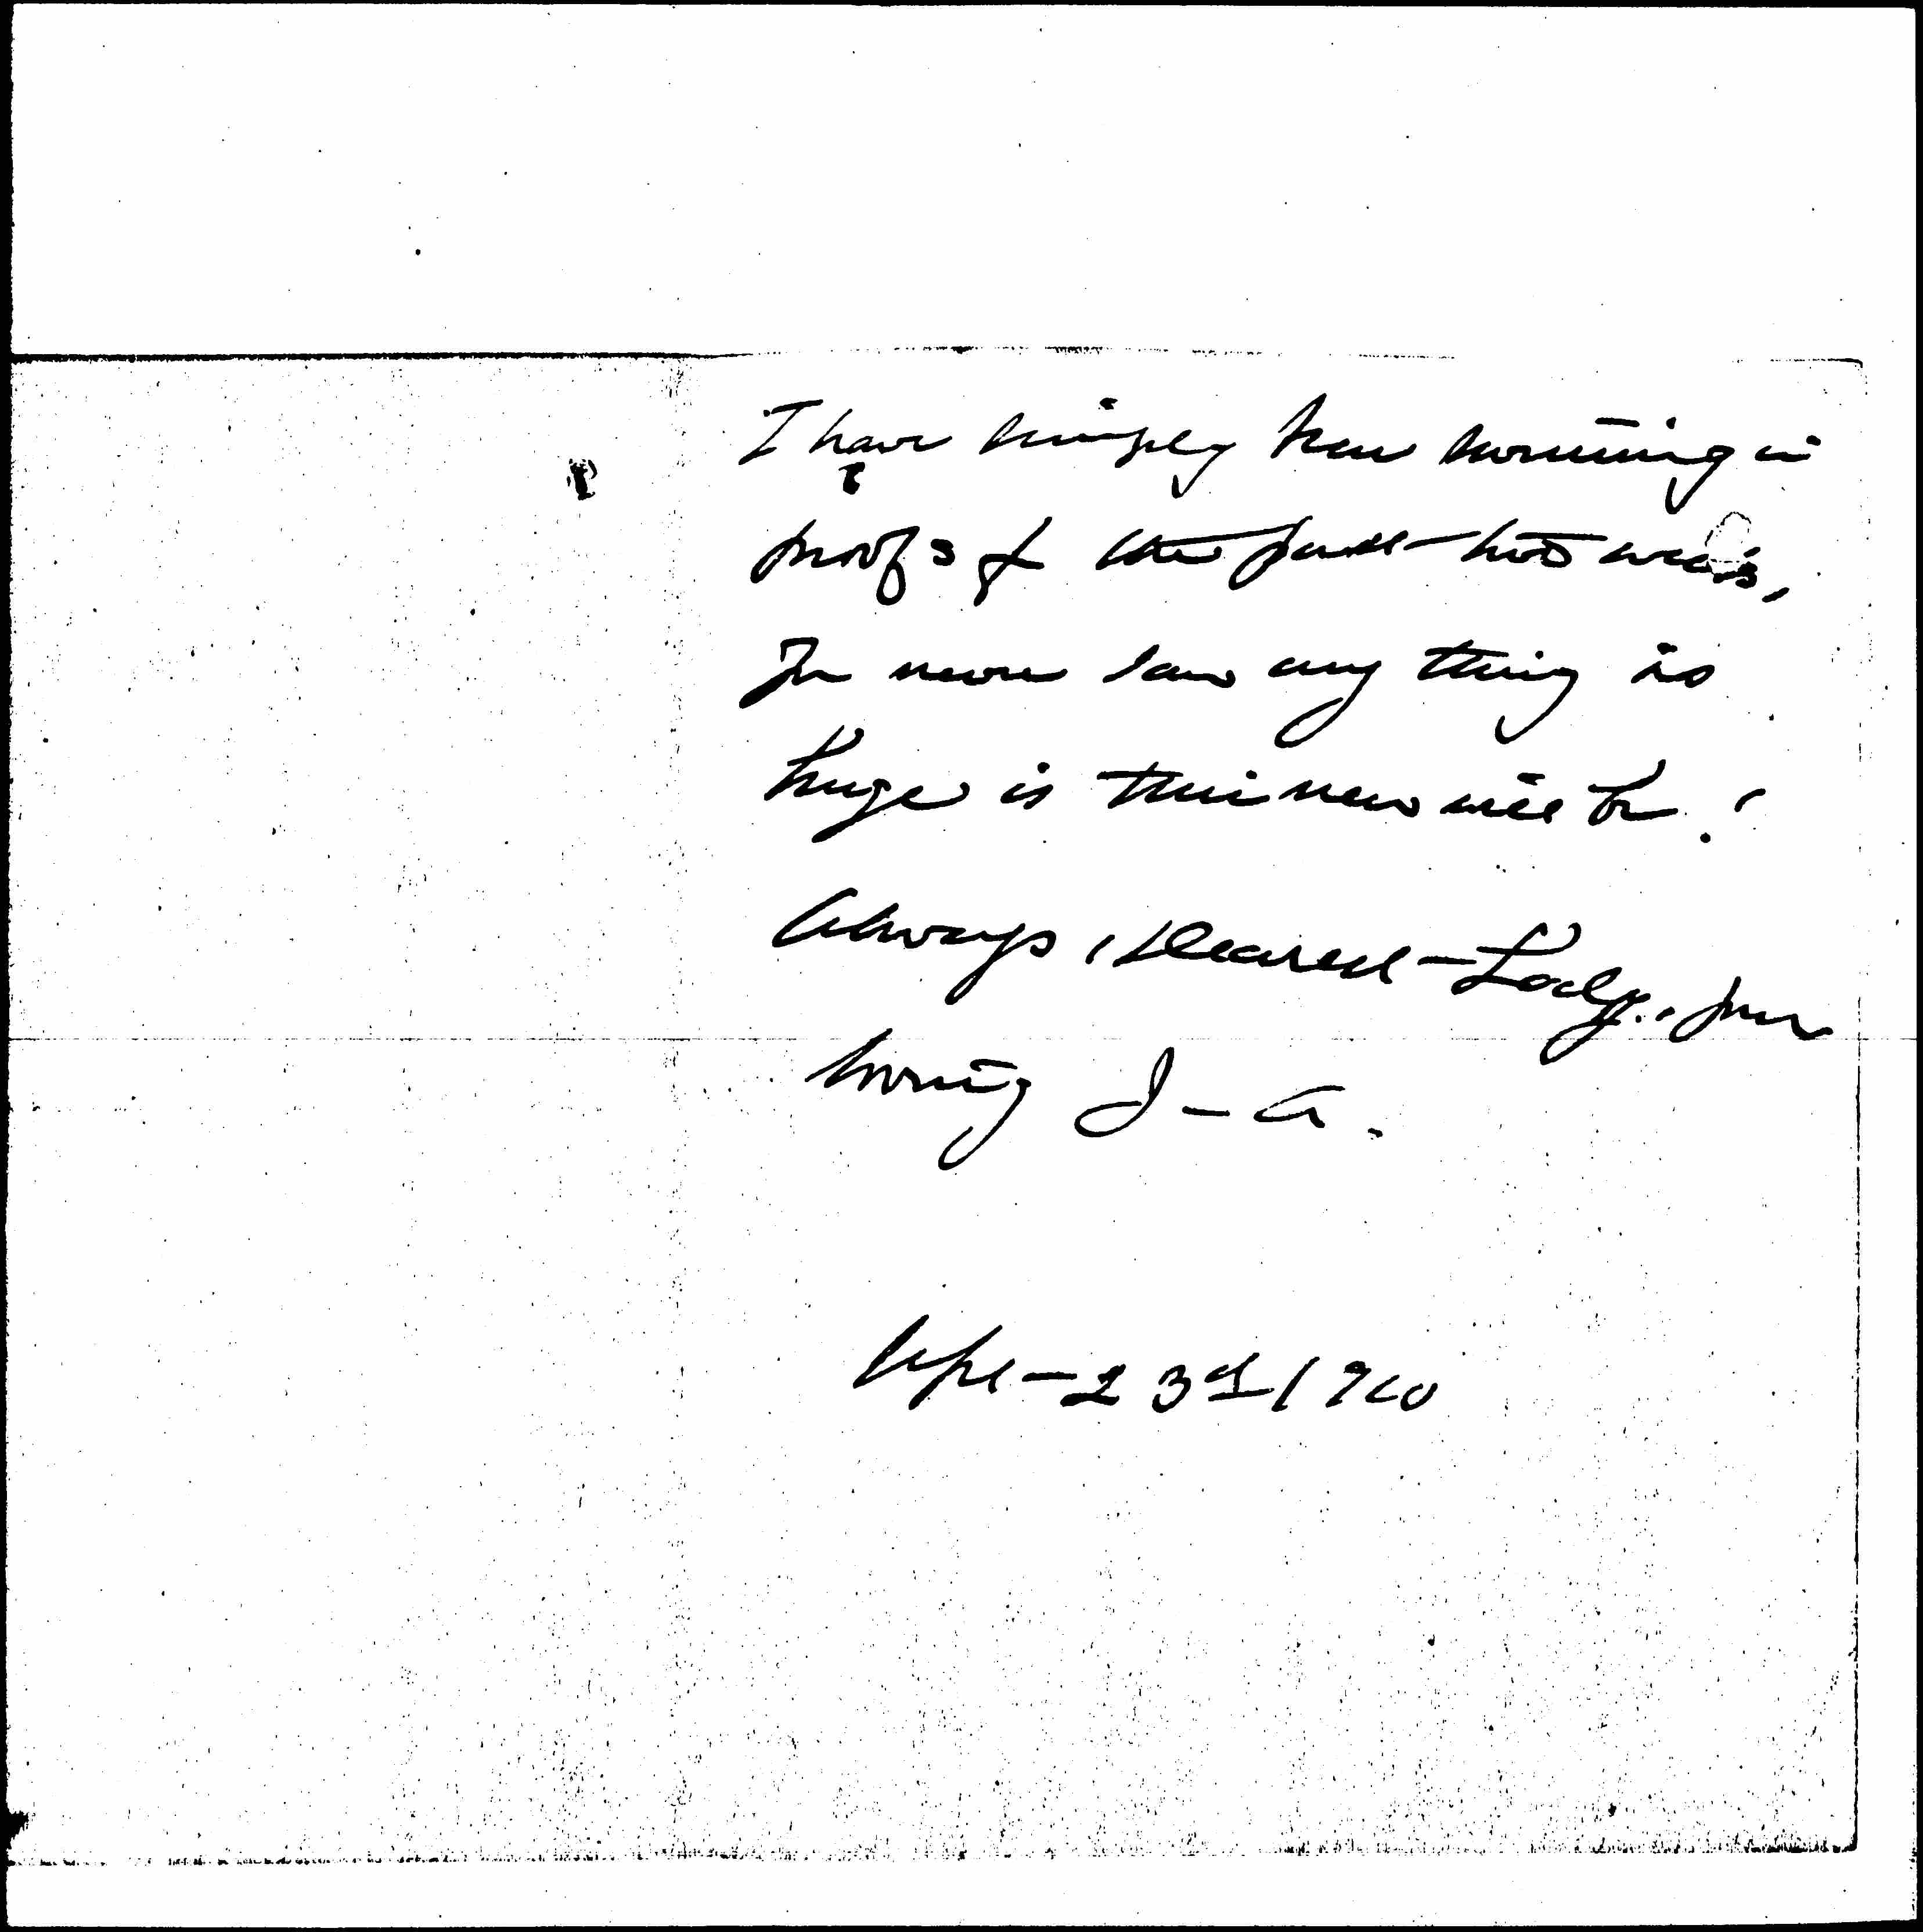 I have simply been swimming in
proofs the past two weeks,
never saw any thing so
huge as this new will be!
Always, Dearest Lady, your
loving J-A.
23d